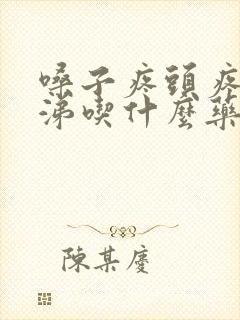 嗓子疼頭疼
涕喫什麼藥
陳某慶